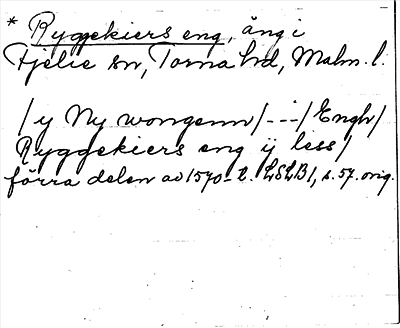 * Ryggekiers eng, äng i
Fjelie sn, Torna hd, Malm. l.
/y Ny wongenn/---/Engh/
Ryggekiers eng ij less/
förra delen av 1570-t. LSLB1, s. 57. orig.